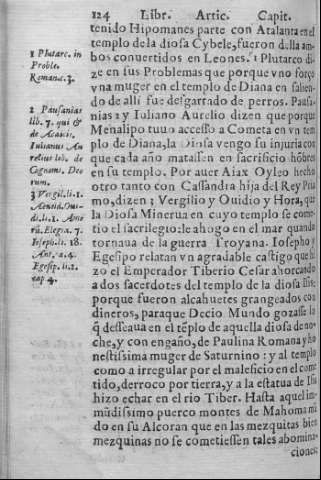 124 Libr. Artic. Capit.
tenido Hipomanes parte con Atalanta en el
templo de la diosa Cybele, fueron allí am-
bos conuertidos en Leones. 1 Plutarco di-
ze en sus Problemas que porque vno forçò
vna muger en el templo de Diana en salien-
do de alli fue desgarrado de perros. Pausa-
nias 2 y Iuliano Aurelio dizen que porque
Menalipo tuuo accesso a Cometa en vn tem
plo de Diana, la Diosa vengo su injuria con
que cada año matassen en sacrificio hõbres
en su templo. Por auer Aiax Oyleo hecho
otro tanto con Cassandra hija del Rey Pria
mo, dizen 3 Vergilio y Ouidio y Hora, que
la Diosa Minerua en cuyo templo se come-
tio el sacrilegio: le ahogo en el mar quando
tornaua de la guerra Troyana. Iosepho y
Egesipo relatan vn agradable castigo que hi
zo el Emperador Tiberio Cesar ahorcando
a dos sacerdotes del templo de la diosa Isis:
porque fueron alcahuetes grangeados con
dineros, paraque Decio Mundo gozasse la
q̃ desseaua en el tẽplo de aquella diosa de no-
che, y con engaño, de Paulina Romana y ho
nestissima muger de Saturnino: y al templo
como a irregular por el maleficio en el come
tido, derroco por tierra, y a la estatua de Isis
hizo echar en el rio Tiber. Hasta aquel im-
mũdissimo puerco montes de Mahoma mã
do en su Alcoran que en las mezquitas bien
mezquinas no se cometiessen tales abomina-
ciones
1 Plutarc. in
Proble.
Romana. 3.
2 Pausanias
lib. 7. qui &
de Acaicis.
Iulianus Au
relius lib. de
Cognom. Deo
rum.
3 Vergil. li. 1.
Aeneid. Oui-
di. li. 1. Amo
rũ. Elegia. 7.
Ioseph. li. 18.
Ant. ca. 4.
Egesip. li. 2.
cap 4.